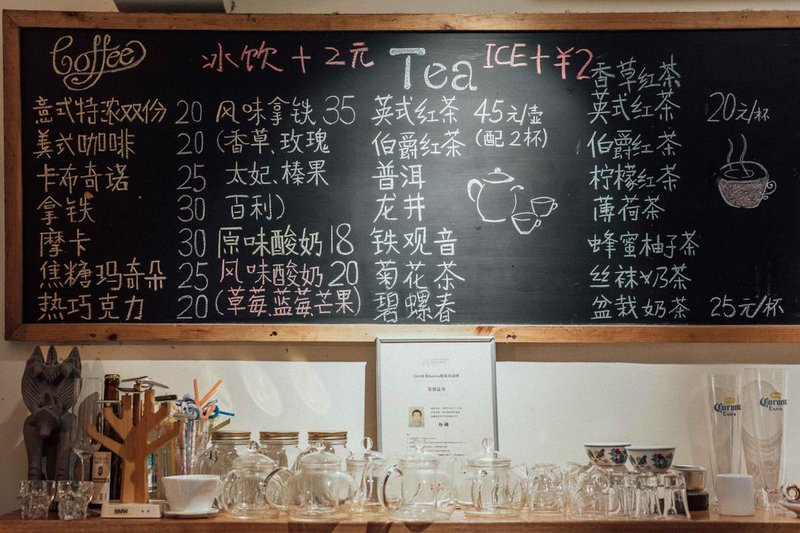 Coffee
意式特浓双份 20
美式咖啡 20
卡布奇诺 25
拿铁 30
摩卡 30
焦糖玛奇朵 25
热巧克力 20
冰饮+2元
风味拿铁 35
(香草、玫瑰
太妃、榛果
百利)
原味酸奶 18
风味酸奶 20
(草莓、蓝莓芒果)
Tea
ICE+¥2
英式红茶 45元/壶
伯爵红茶 (配2杯)
普洱
龙井
铁观音
菊花茶
碧螺春
香草红茶
英式红茶 20元/杯
伯爵红茶
柠檬红茶
薄荷茶
蜂蜜柚子茶
丝袜奶茶
盆栽奶茶 25元/杯
荣誉证书
BMW
Corona
Extra
Corona
Extra